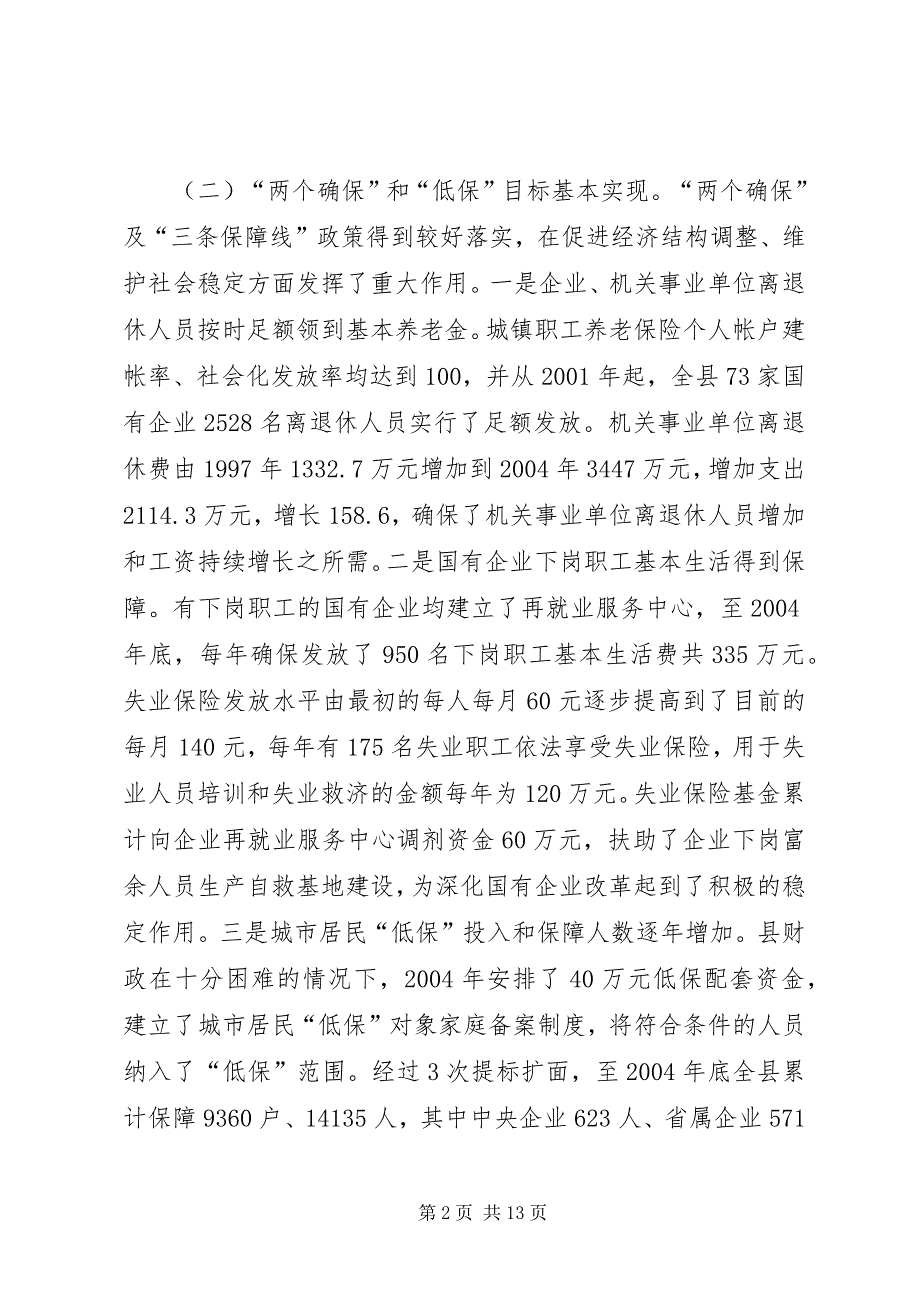 （二）“两个确保”和“低保”目标基本实现。“两个确保”
及“三条保障线”政策得到较好落实，在促进经济结构调整、维
护社会稳定方面发挥了重大作用。一是企业、机关事业单位离退
休人员按时足额领到基本养老金。城镇职工养老保险个人帐户建
帐率、社会化发放率均达到 100，并从 2001 年起，全县 73 家国
有企业 2528 名离退休人员实行了足额发放。机关事业单位离退
休费由 1997 年 1332.7 万元增加到 2004 年 3447 万元，增加支出
2114.3 万元，增长 158.6，确保了机关事业单位离退休人员增加
和工资持续增长之所需。二是国有企业下岗职工基本生活得到保
障。有下岗职工的国有企业均建立了再就业服务中心，至 2004
年底，每年确保发放了 950 名下岗职工基本生活费共 335 万元。
失业保险发放水平由最初的每人每月 60 元逐步提高到了目前的
每月 140 元，每年有 175 名失业职工依法享受失业保险，用于失
业人员培训和失业救济的金额每年为 120 万元。失业保险基金累
计向企业再就业服务中心调剂资金 60 万元，扶助了企业下岗富
余人员生产自救基地建设，为深化国有企业改革起到了积极的稳
定作用。三是城市居民“低保”投入和保障人数逐年增加。县财
政在十分困难的情况下，2004 年安排了 40 万元低保配套资金，
建立了城市居民“低保”对象家庭备案制度，将符合条件的人员
纳入了“低保”范围。经过 3 次提标扩面，至 2004 年底全县累
计保障 9360 户、14135 人，其中中央企业 623 人、省属企业 571
第 2 页 共 13 页